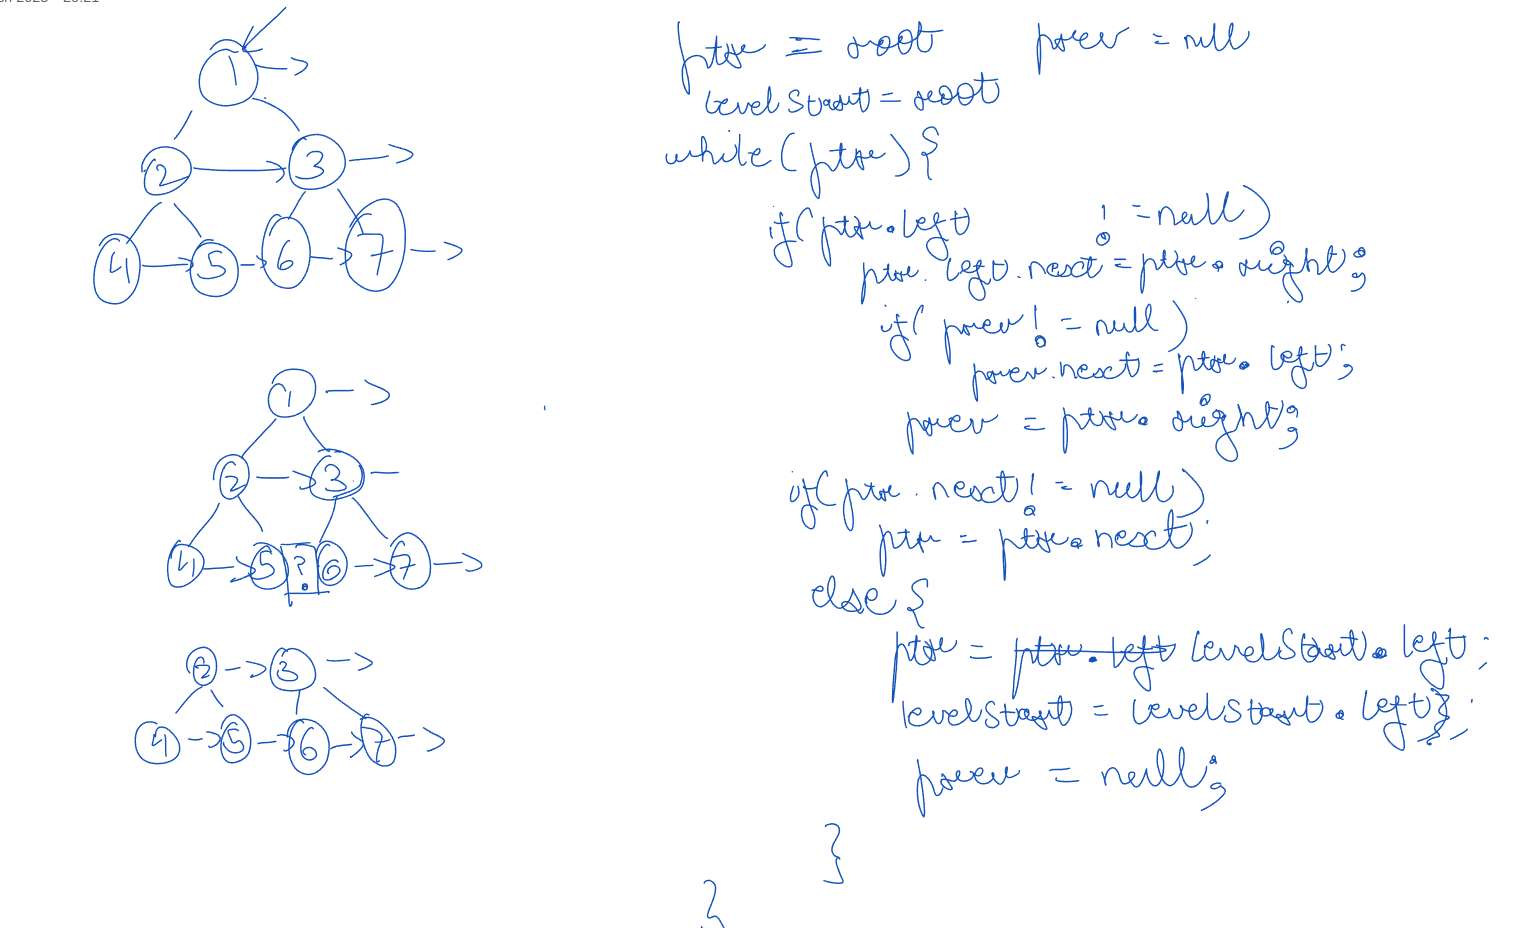 1
2 3
4 5 6 7
1
2 3
4 5 ? 6 7
2 3
4 5 6 7
ptr = root prev = null
levelStart = root
while(ptr){
if(ptr.left != null)
ptr.left.next = ptr.right;
if(prev != null)
prev.next = ptr.left;
prev = ptr.right;
if(ptr.next != null)
ptr = ptr.next;
else {
ptr = ptr.left levelStart.left;
levelStart = levelStart.left;
prev = null;
}
}